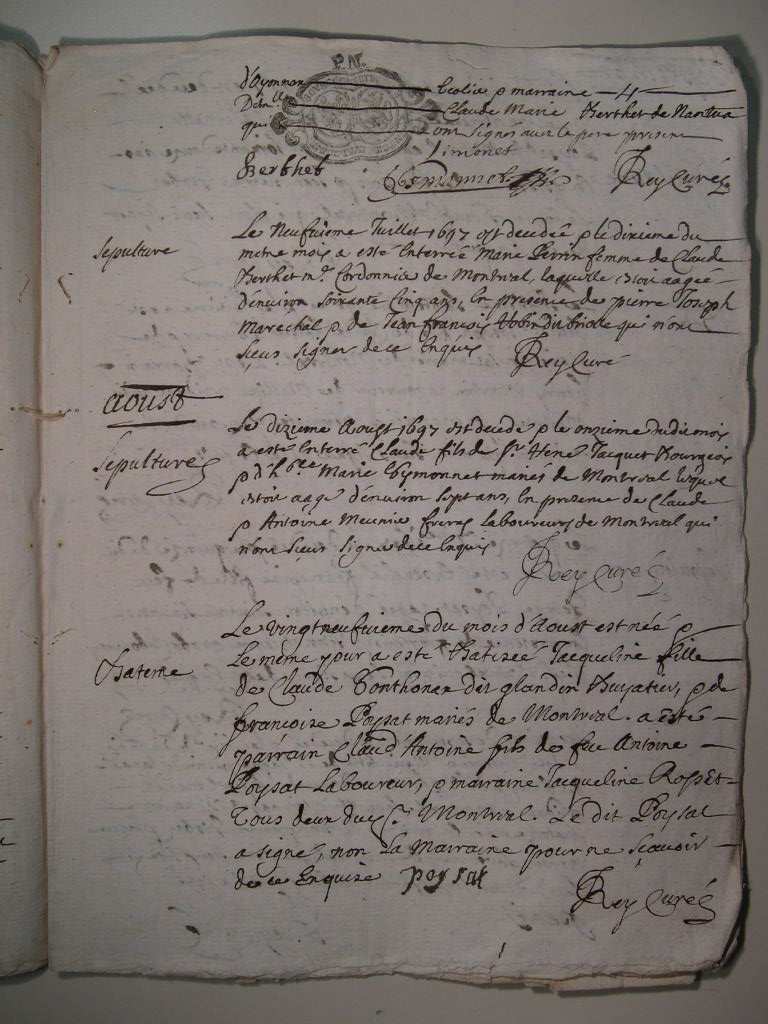 P.N.
d'Oyonnax Ecolier & marraine
Dam.lle Claude Marie Berthet de Nantua
qui ont signés avec le pere present
Berthet Jimonet Rey Curé
Sepulture
Le Neufvieme Juillet 1697 est decedée & le dixieme du
meme mois a esté Enterrée Marie Perrin femme de Claude
Berthet m.e Cordonnier de Montreal, laquelle estoit aagée
d'environ soixante Cinq ans, En presence de pierre Joseph
Marechal & de Jean francois qui n'ont
sçeus signer de ce Enquis Rey Curé
aoust
Sepulture
Le dixieme Aoust 1697 est decedé & le onzieme dudit mois
a esté Enterré Claude fils de Sr. René Jacquet Bourgeois
& d'h.ble Marie mariés de Montreal lequel
estoit aagé d'environ sept ans, En presence de Claude
& Antoine Meunier freres laboureurs de Montreal qui
n'ont sçeus signer de ce Enquis
Rey Curé
Bateme
Le vingt neufvieme du mois d'Aoust est née &
Le même jour a este Batisée Jacqueline fille
de Claude Ponthoner dit glandin Buyatier, & de
francoise Poysat mariés de Montreal. a esté
parrain Claud'Antoine fils de feu Antoine
Poysat Laboureur, & marraine Jacqueline Rosset
Tous deux du Montreal. Le dit Poysat
a signé, non La Marraine pour ne sçavoir
de ce Enquise poysat
Rey Curé